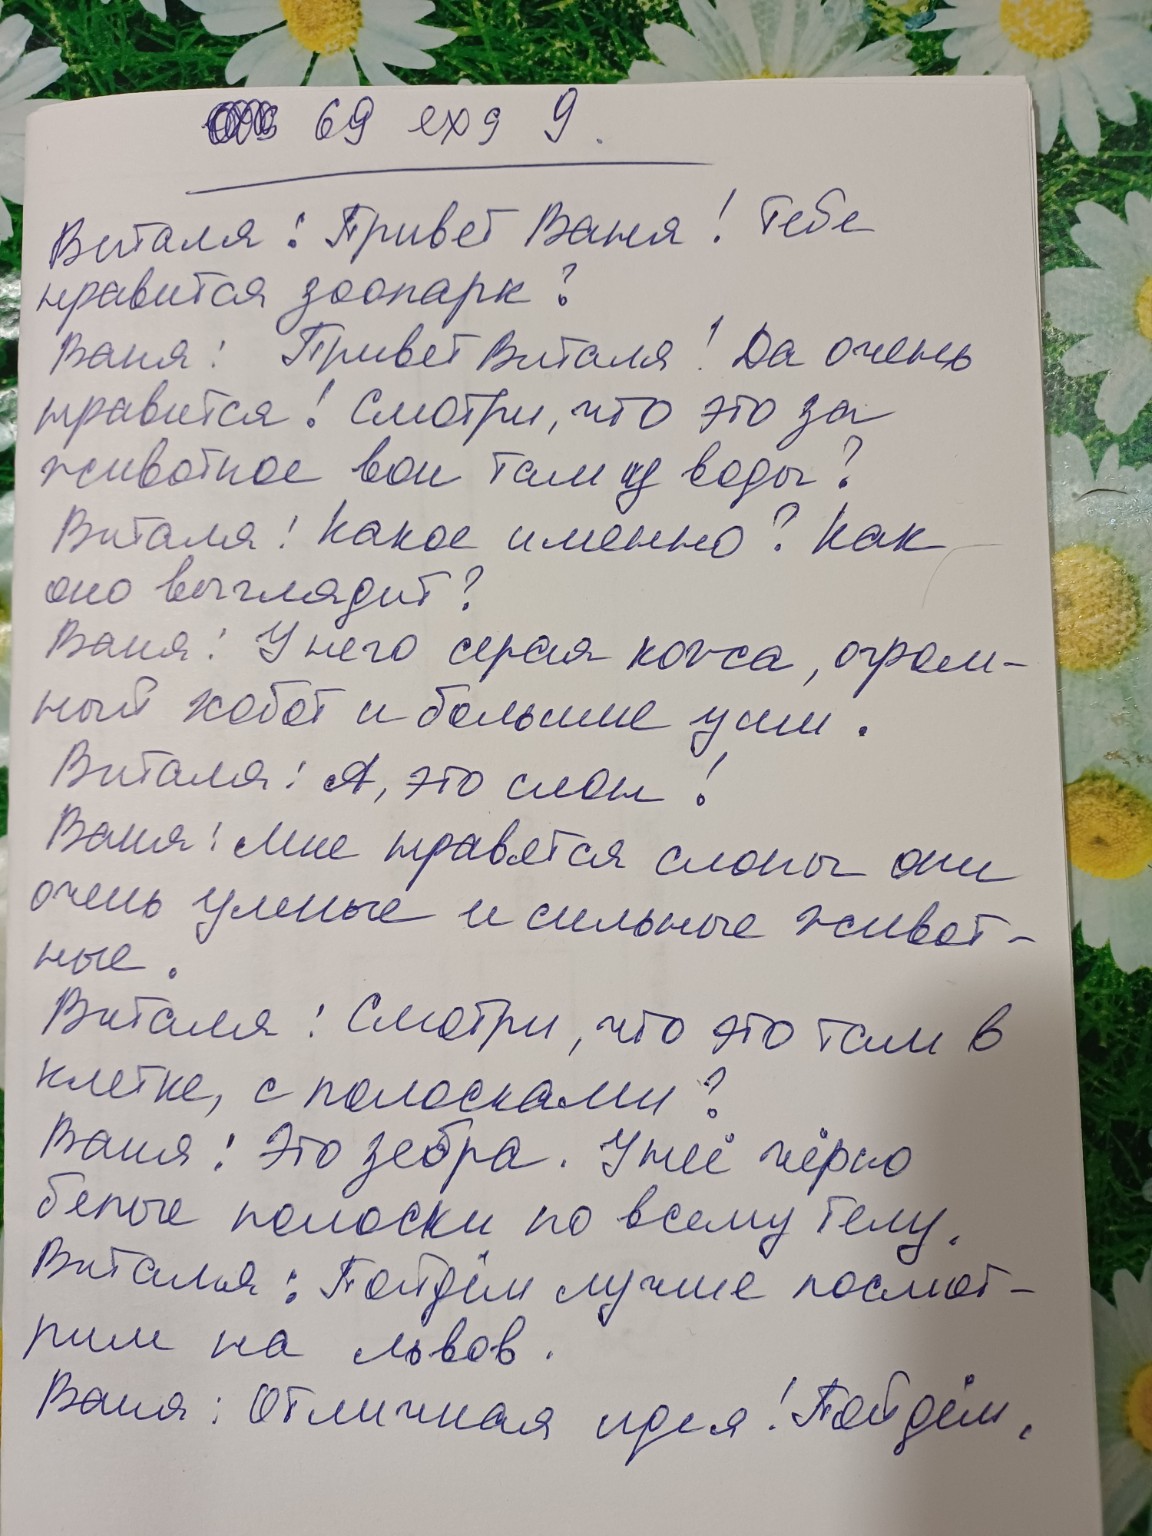 69 exg 9.
Виталя: Привет Ваня! Тебе
нравится зоопарк?
Ваня: Привет Виталя! Да очень
нравится! Смотри, что это за
животное вон там у воды?
Виталя: Какое именно? Как
оно выглядит?
Ваня: У него серая кожа, огром-
ный хобот и большие уши.
Виталя: А, это слон!
Ваня: Мне нравятся слоны они
очень умные и сильные живот-
ные.
Виталя: Смотри, что это там в
клетке, с полосками?
Ваня: Это зебра. У неё чёрно
белые полоски по всему телу.
Виталья: Пойдём лучше посмот-
рим на львов.
Ваня: Отличная идея! Пойдём.